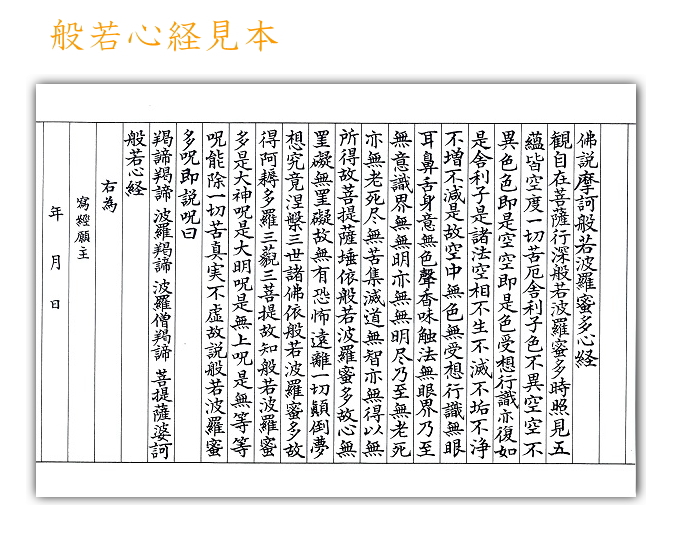 般若心経見本
佛説摩訶般若波羅蜜多心経
観自在菩薩行深般若波羅蜜多時照見五
蘊皆空度一切苦厄舎利子色不異空空不
異色色即是空空即是色受想行識亦復如
是舎利子是諸法空相不生不滅不垢不浄
不増不減是故空中無色無受想行識無眼
耳鼻舌身意無色聲香味触法無眼界乃至
無意識界無無明亦無無明尽乃至無老死
亦無老死尽無苦集滅道無智亦無得以無
所得故菩提薩埵依般若波羅蜜多故心無
罣礙無罣礙故無有恐怖遠離一切顛倒夢
想究竟涅槃三世諸佛依般若波羅蜜多故
得阿耨多羅三藐三菩提故知般若波羅蜜
多是大神呪是大明呪是無上呪是無等等
呪能除一切苦真実不虚故説般若波羅蜜
多呪即説呪曰
羯諦羯諦 波羅羯諦 波羅僧羯諦 菩提薩婆訶
般若心経
右為
寫經願主
年 月 日